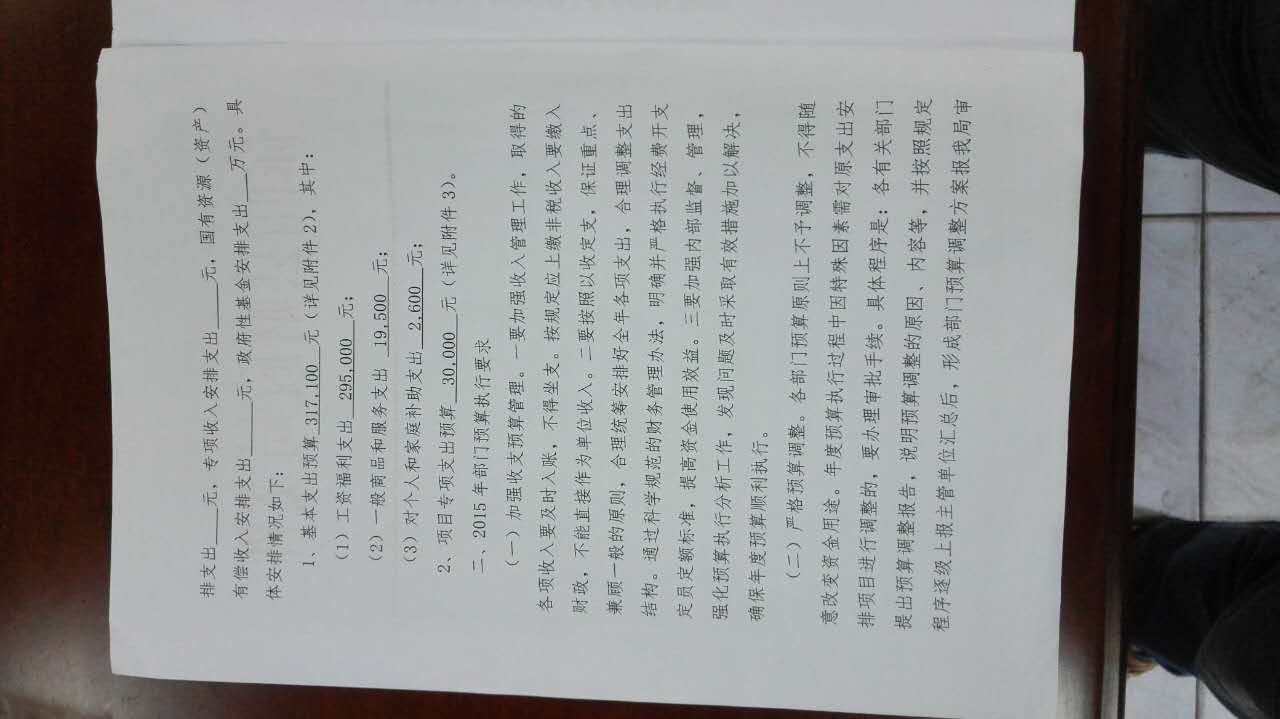 排支出____元，专项收入安排支出____元，国有资源（资产）
有偿收入安排支出____元，政府性基金安排支出__万元。具
体安排情况如下：
1、基本支出预算 317,100 元（详见附件 2），其中：
（1）工资福利支出 295,000 元；
（2）一般商品和服务支出 19,500 元；
（3）对个人和家庭补助支出 2,600 元；
2、项目专项支出预算 30,000 元（详见附件 3）。
二、2015 年部门预算执行要求
（一）加强收支预算管理。一要加强收入管理工作，取得的
各项收入要及时入账，不得坐支。按规定应上缴非税收入要缴入
财政，不能直接作为单位收入。二要按照以收定支，保证重点、
兼顾一般的原则，合理统筹安排好全年各项支出，合理调整支出
结构。通过科学规范的财务管理办法，明确并严格执行经费开支
定员定额标准，提高资金使用效益。三要加强内部监督、管理，
强化预算执行分析工作，发现问题及时采取有效措施加以解决，
确保年度预算顺利执行。
（二）严格预算调整。各部门预算原则上不予调整，不得随
意改变资金用途。年度预算执行过程中因特殊因素需对原支出安
排项目进行调整的，要办理审批手续。具体程序是：各有关部门
提出预算调整报告，说明预算调整的原因、内容等，并按照规定
程序逐级上报主管单位汇总后，形成部门预算调整方案报我局审